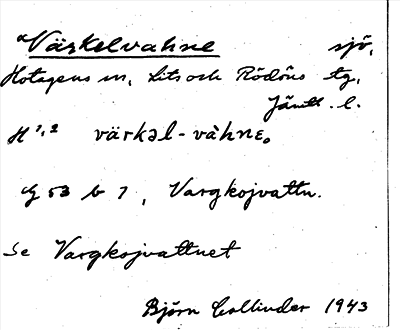 Värkelvahne sjö,
Hotagens sn, Lits och Rödöns tg,
Jämtl. l.
H 1,2 värkəl-vàhnɛ.
G 53 b 7, Vargkojvattn.
Se Vargkojvattnet
Björn Collinder 1943